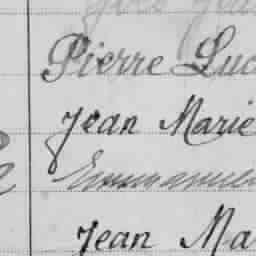 Pierre Luc
Jean Marie
Emmanuel
Jean Ma